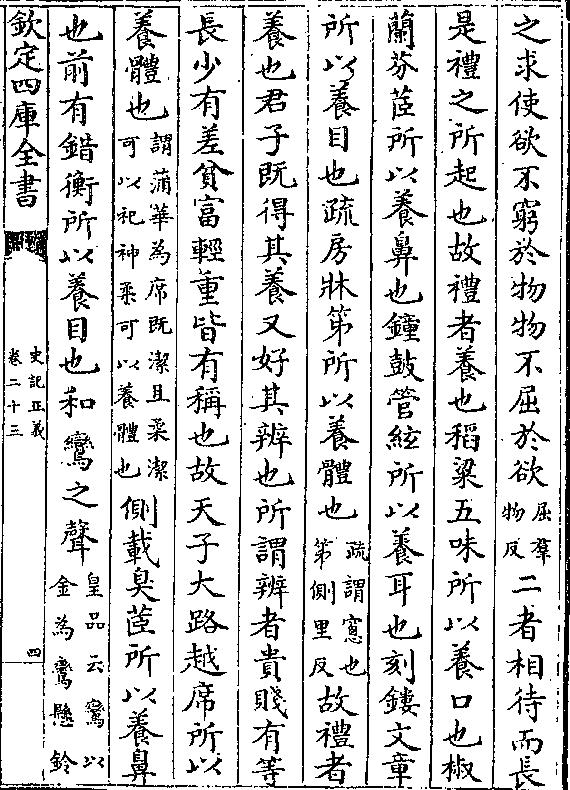 之求使欲不窮於物物不屈於欲屈羣物反二者相待而長
是禮之所起也故禮者養也稻粱五味所以養口也椒
蘭芬茝所以養鼻也鐘鼓管絃所以養耳也刻鏤文章
所以養目也疏房牀第所以養體也疏謂窻也第側里反故禮者
養也君子既得其養又好其辨也所謂辨者貴賤有等
長少有差貧富輕重皆有稱也故天子大路越席所以
養體也謂蒲華為席既潔且柔潔可以祀神柔可以養體也側載臭茝所以養鼻
也前有錯衡所以養目也和鸞之聲皇品云鸞以金為鸞懸鈴
欽定四庫全書
史記正義
卷二十三
四